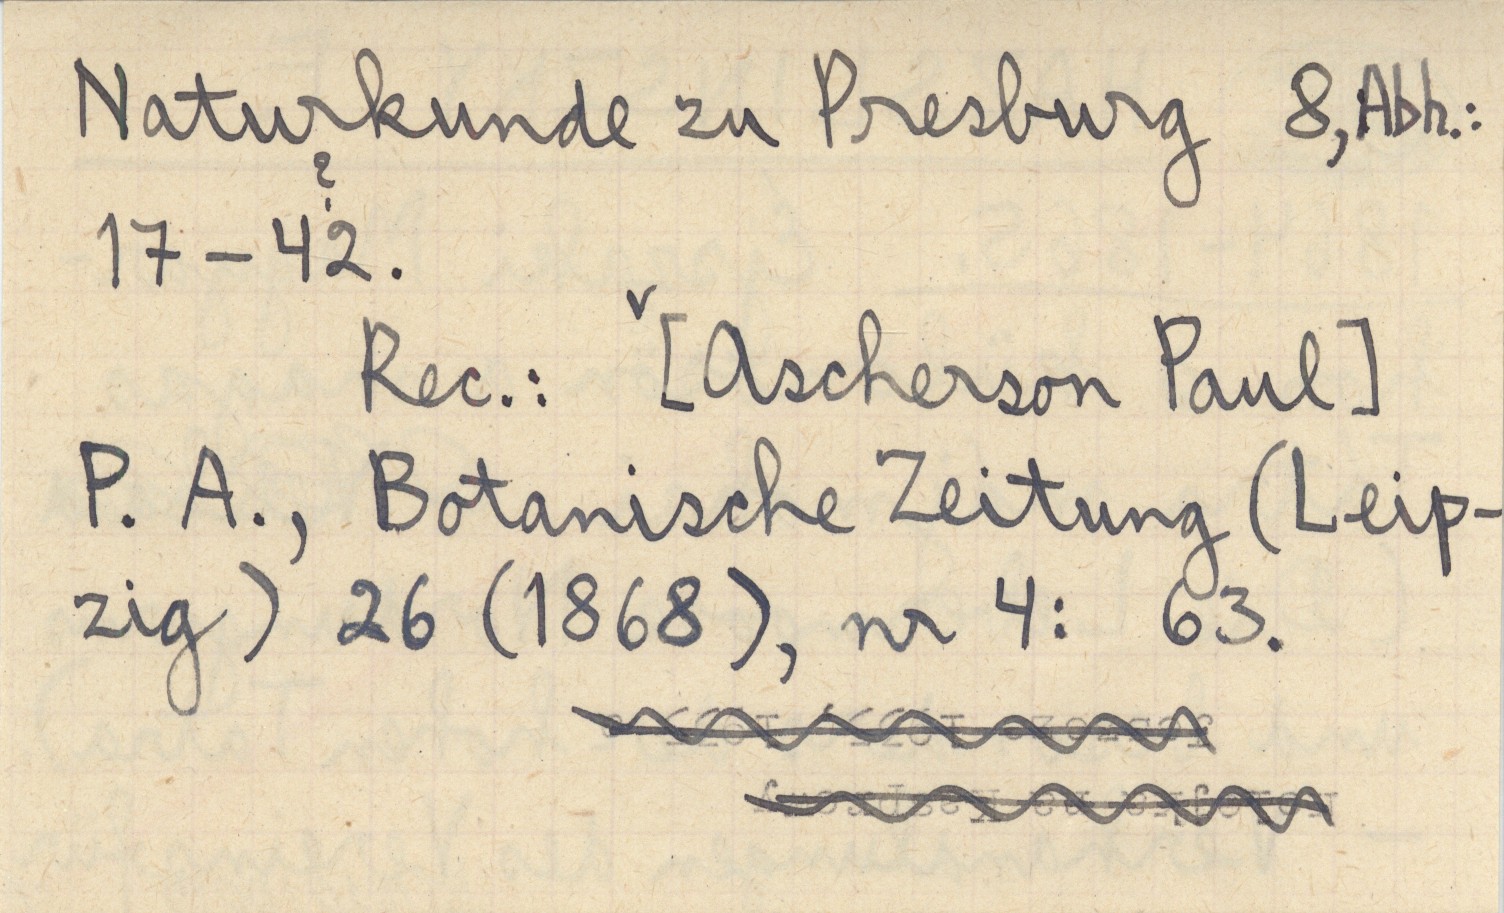 Naturkunde zu Presburg 8, Abh.:
?
17-42.
Rec.: ᵛ[Ascherson Paul]
P. A., Botanische Zeitung (Leip-
zig) 26 (1868), nr 4: 63.